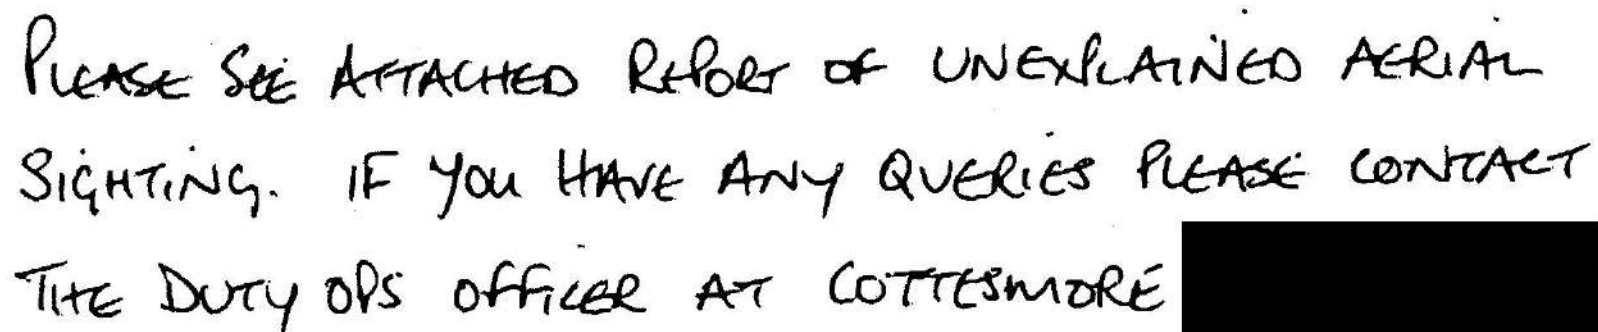 PLEASE SEE ATTACHED REPORT OF UNEXPLAINED AERIAL
SIGHTING. IF YOU HAVE ANY QUERIES PLEASE CONTACT
THE DUTY OPS OFFICER AT COTTESMORE